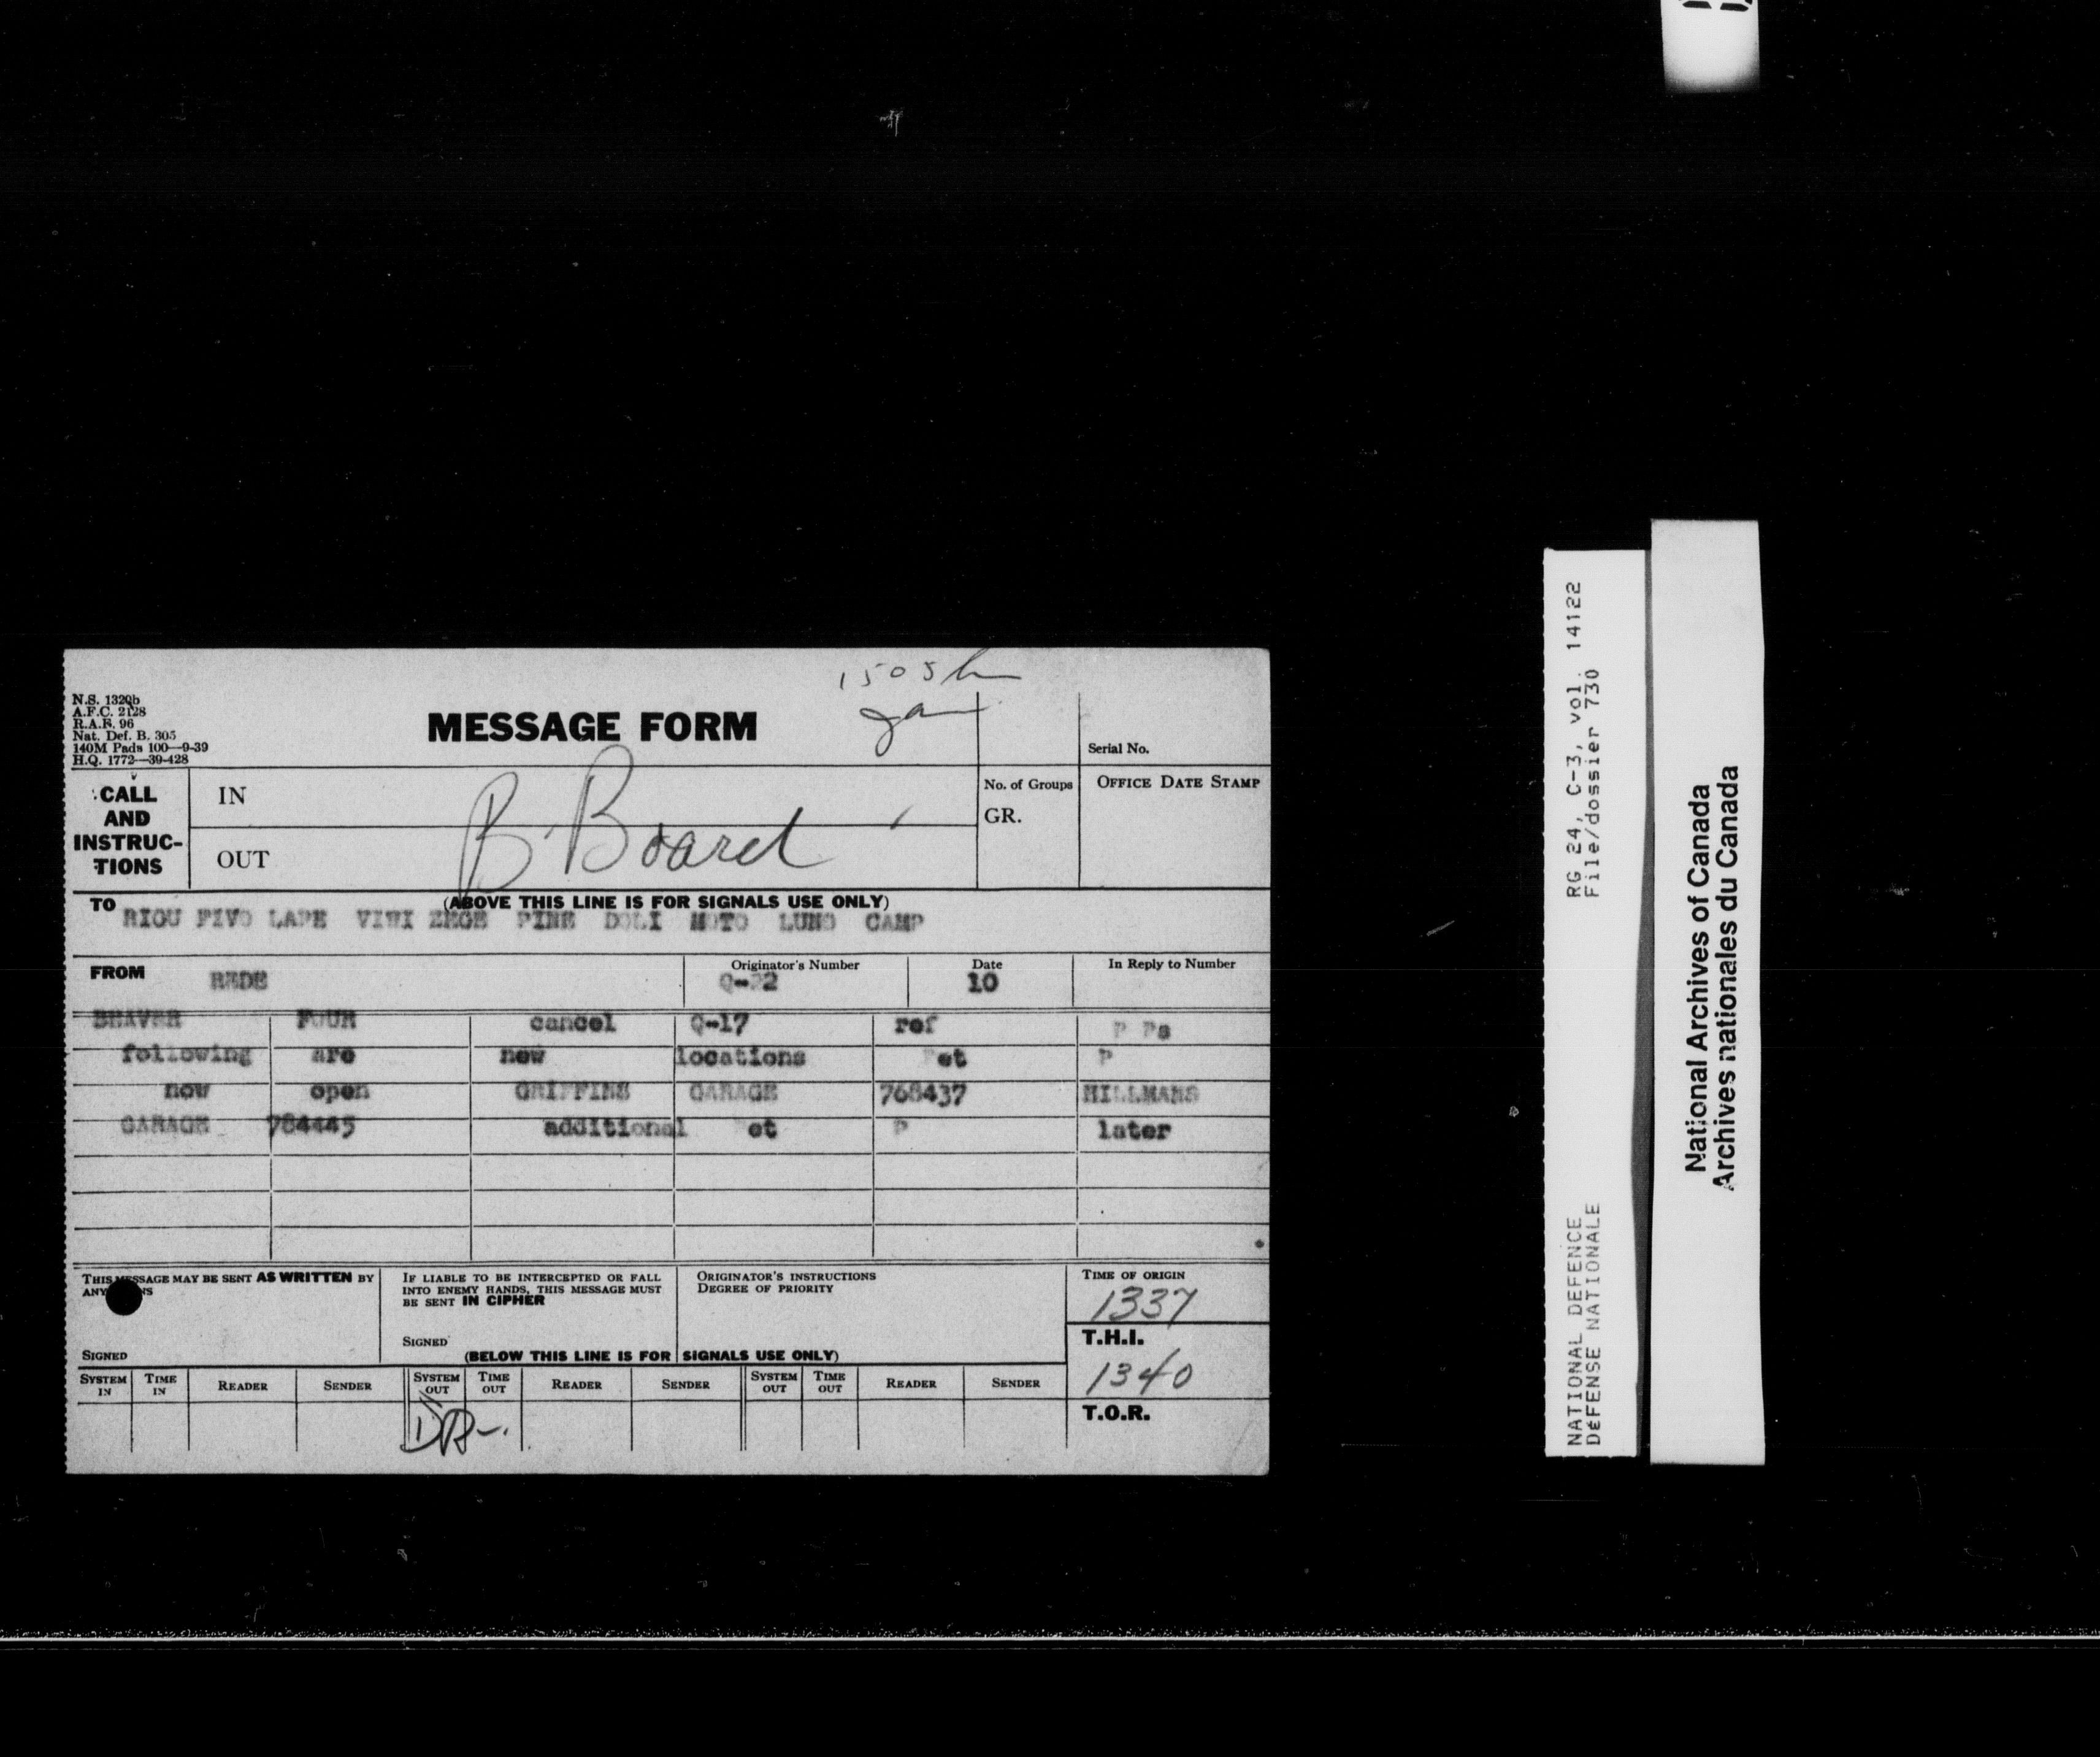 1505h
N.S. 1320b
A.F.C. 2128
R.A.F. 96
Nat. Def. B. 305
140M Pads 100—9-39
H.Q. 1772—39-428
MESSAGE FORM
Serial No.
CALL AND INSTRUC-TIONS
IN
OUT
B. Board
No. of Groups
GR.
OFFICE DATE STAMP
(ABOVE THIS LINE IS FOR SIGNALS USE ONLY)
TO RIOU FIVO LAPE VIWI ZEGE PINE DOLI MOTO LUNO CAMP
FROM REDE
Originator's Number
Q-22
Date
10
In Reply to Number
BEAVER FOUR cancel Q-17 ref P Ps
following are new locations et P
now open GRIFFINS GARAGE 768437 HILLMANS
GARAGE 784445 additional et P later
THIS MESSAGE MAY BE SENT AS WRITTEN BY
ANY
SIGNED
IF LIABLE TO BE INTERCEPTED OR FALL
INTO ENEMY HANDS, THIS MESSAGE MUST
BE SENT IN CIPHER
SIGNED
ORIGINATOR'S INSTRUCTIONS
DEGREE OF PRIORITY
TIME OF ORIGIN
1337
T.H.I.
1340
T.O.R.
(BELOW THIS LINE IS FOR SIGNALS USE ONLY)
SYSTEM IN TIME IN READER SENDER SYSTEM OUT TIME OUT READER SENDER SYSTEM OUT TIME OUT READER SENDER
RG 24, C-3, vol. 14122
File/dossier 730
NATIONAL DEFENCE
DéFENSE NATIONALE
National Archives of Canada
Archives nationales du Canada